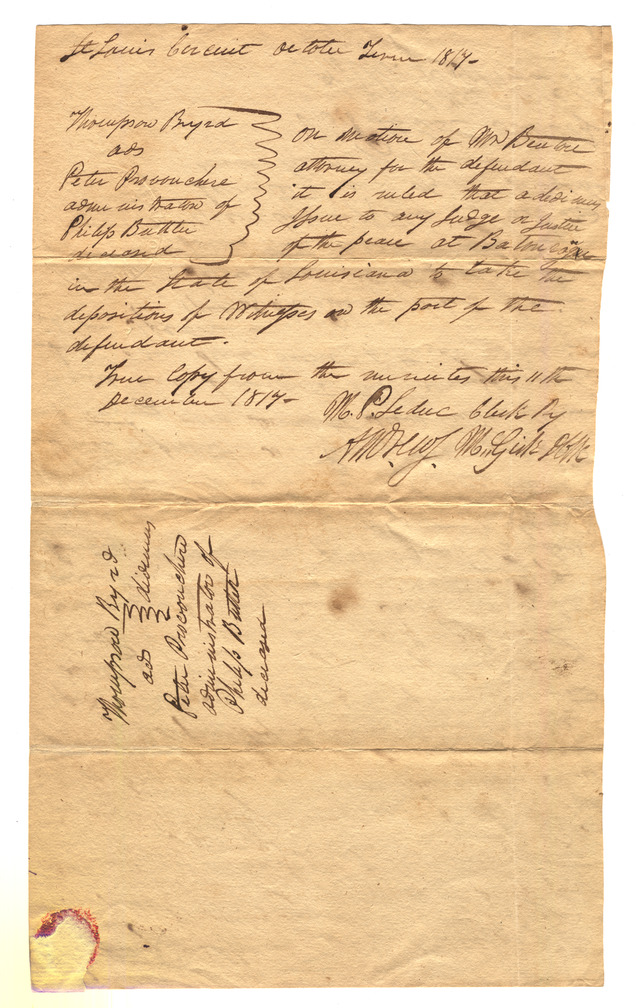 St Louis Circuit October Term 1817-
Thompson Byrd
ads
Peter Provonchere
administrator of
Philip Butler
deceased
On motion of Mr
attorney for the defendant
it is ruled that a dedimus
Issue to any Judge or Justice
of the peace at
in the State of Louisiana to take the
depositions of Witnesses on the part of the
defendant.
True Copy from the minutes this 11th
December 1817-
M. P. Leduc Clerk By
Thompson Byrd
ads dedimus
Peter Provonchere
administrator of
Philip Butler
deceased